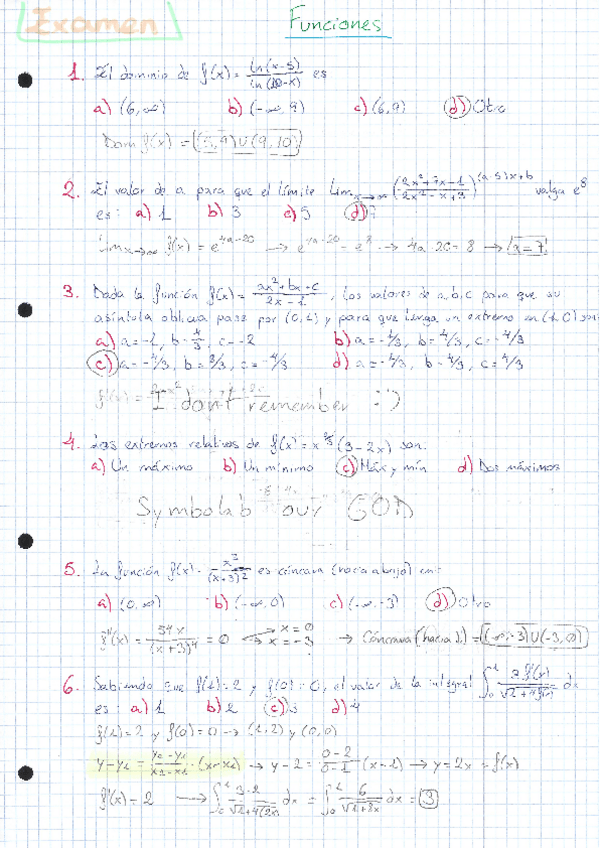 Examen
Funciones
1. El dominio de f(x) = ln(x-5)/ln(10-x) es
a) (6, ∞) b) (-∞, 9) c) (6, 9) d) Otro
Dom f(x) = (5, 9) U (9, 10)
2. El valor de a para que el límite Lim x→∞ ((2x²+7x-1)/(2x²-x+3))^((a-5)x+b) valga e⁸
es: a) 1 b) 3 c) 5 d) 7
Lim x→∞ f(x) = e^(4a-20) → e^(4a-20) = e⁸ → 4a-20=8 → a=7
3. Dada la función f(x) = (ax²+bx+c)/(2x-1), los valores de a, b, c para que su
asíntota oblicua pase por (0,1) y para que tenga un extremo en (1,0) son
a) b) a=-4/3, b=4/3, c=-4/3
c) a=-4/3, b=8/3, c=-4/3 d) a=-4/3, b=4/3, c=4/3
I dont remember :)
4. Los extremos relativos de f(x) = (3-2x) son:
a) Un máximo b) Un mínimo c) Máx y mín d) Dos máximos
Symbolab our GOD
5. La función f(x) = x³/(x+3)² es cóncava (hacia abajo) en:
a) (0, ∞) b) (-∞, 0) c) (-∞, -3) d) Otro
f''(x) = 54x/(x+3)⁴ = 0 x=0 x=-3 → Cóncava (hacia ↓) = (-∞, -3) U (-3, 0)
6. Sabiendo que f(1)=2 y f(0)=0, el valor de la integral dx
es: a) 1 b) 2 c) 3 d) 4
f(1)=2 y f(0)=0 → (1,2) y (0,0)
→ y-2 = (0-2)/(0-1) · (x-1) → y=2x=f(x)
f'(x)=2 → ∫₀¹ 3·2/√(1+4(2x)) dx = ∫₀¹ 6/√(1+8x) dx = 3